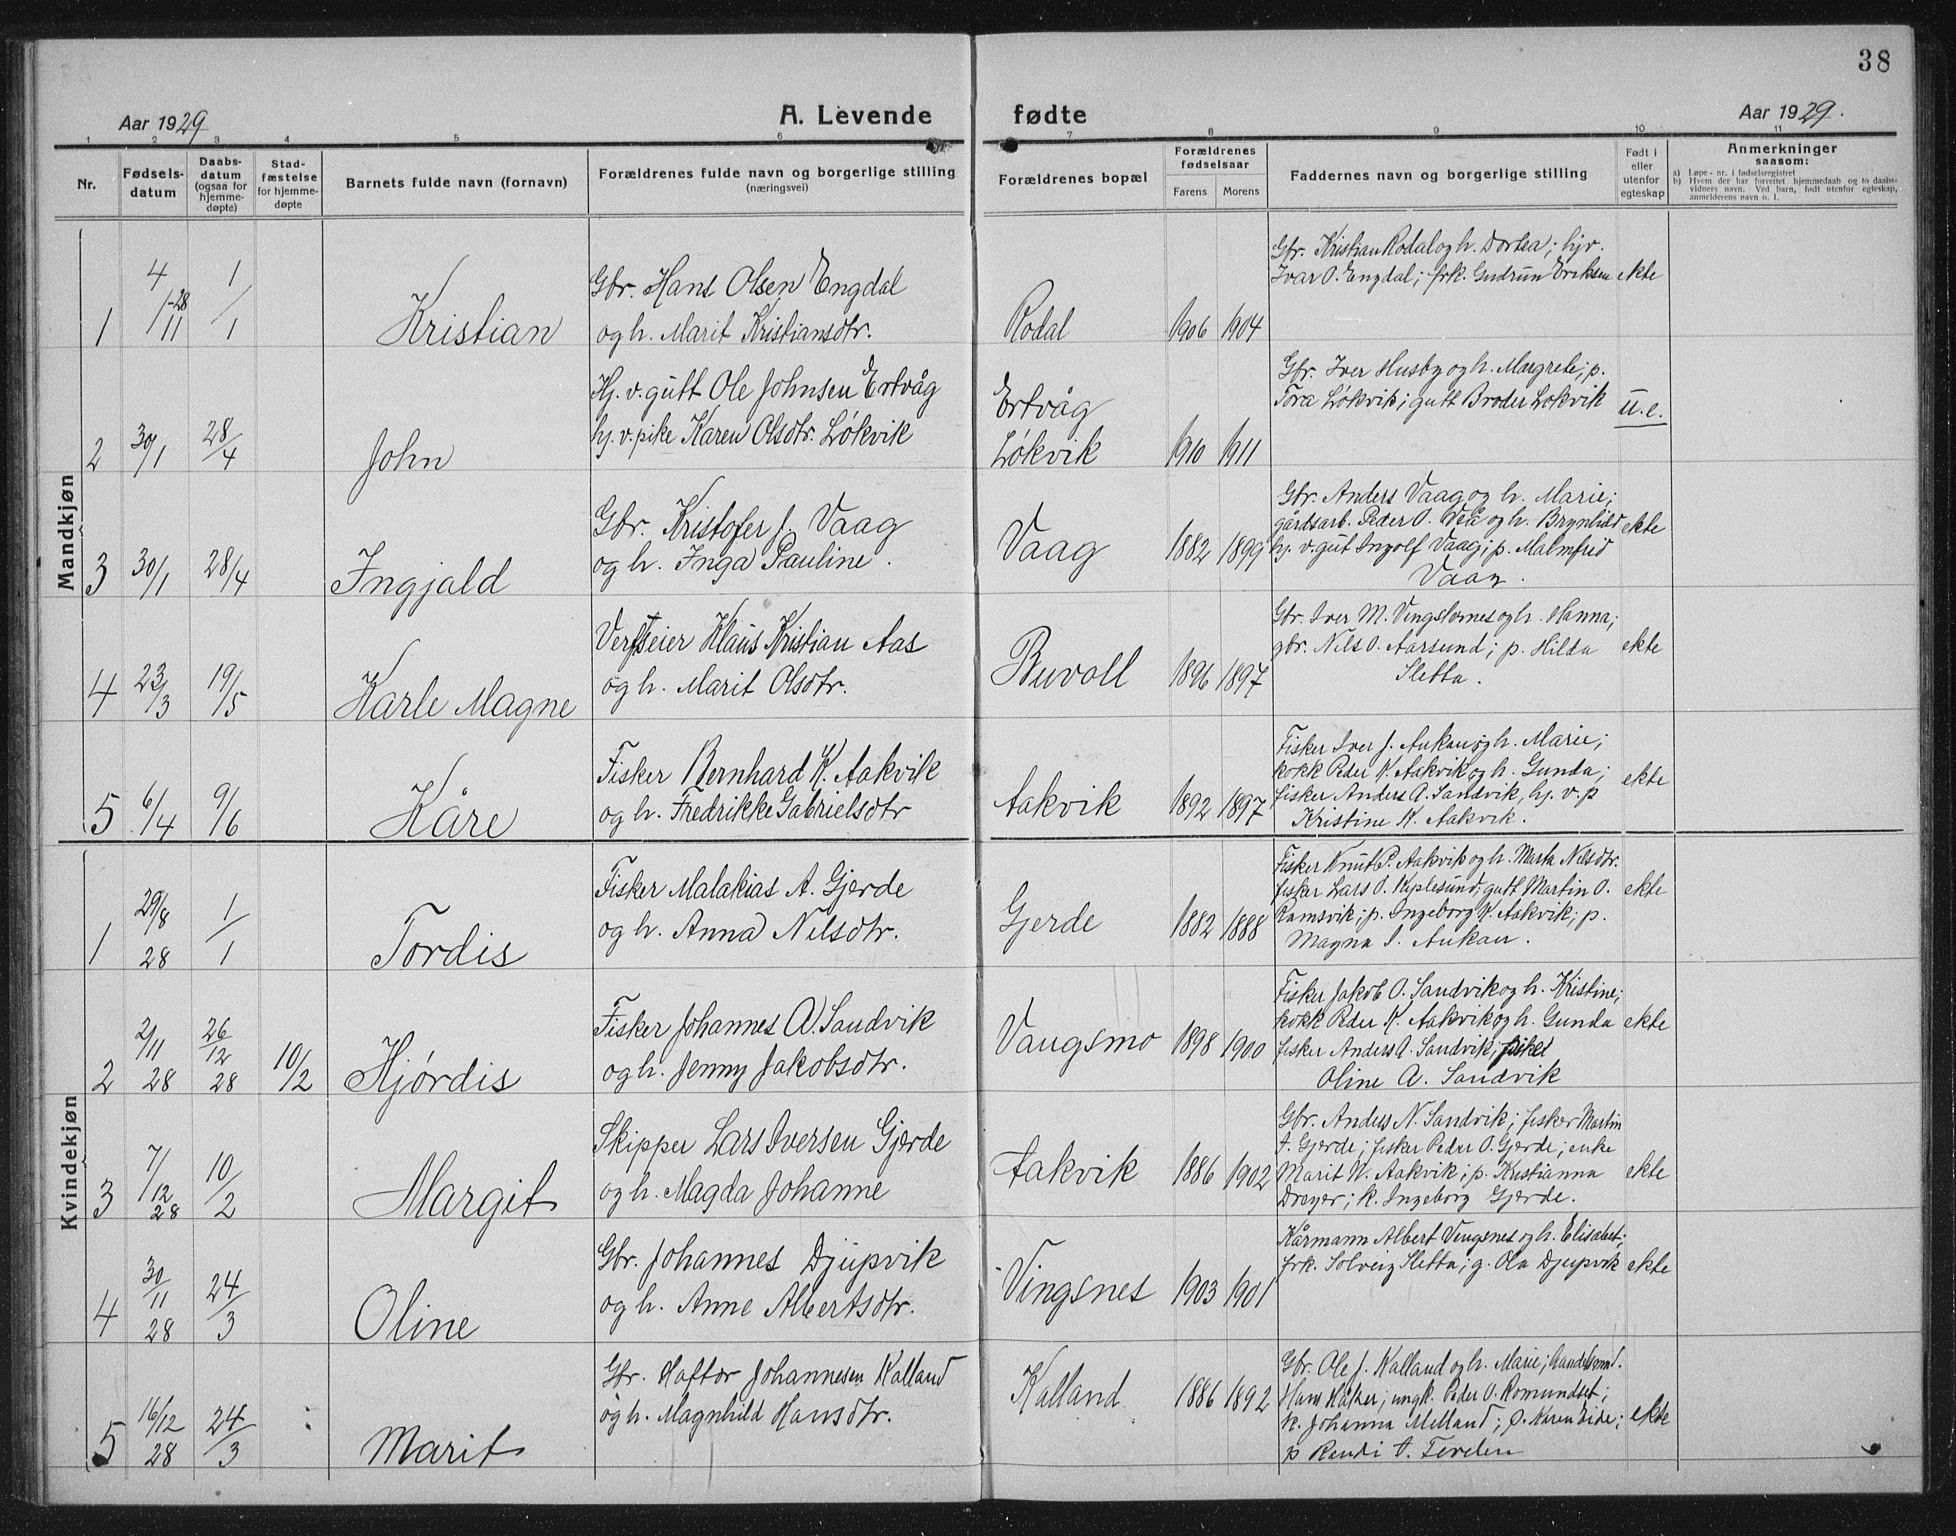 38
Aar 1929
A. Levende fødte
Aar 1929.
1 2 3 4 5 6 7 8 9 10 11
Nr.
Fødsels-
datum
Daabs-
datum
(ogsaa for
hjemme-
døpte)
Stad-
fæstelse
for hjemme-
døpte
Barnets fulde navn (fornavn)
Forældrenes fulde navn og borgerlige stilling
(næringsvei)
Forældrenes bopæl
Forældrenes
fødselsaar
Farens Morens
Faddernes navn og borgerlige stilling
Født i
eller
utenfor
egteskap
Anmerkninger
saasom:
a) Løpe-nr. i fødselsregistret
b) Hvem der har forrettet hjemmedaab og to daabs-
vidners navn. Ved barn, født utenfor egteskap,
anmelderens navn o. l.
Mandkjøn
1 4/11-28 1/1 Kristian
Gbr. Hans Olsen Engdal
og h. Marit Kristiansdtr.
Rodal 1906 1904
Gbr. Kristian Rodal og h. Dortea; hjv.
Ivar O. Engdal; frk. Gudrun Eriksen ekte
2 30/1 28/4 John
Hj. v. gutt Ole Johnsen Ertvåg
hj. v. pike Karen Olsdtr. Løkvik
Ertvåg
Løkvik 1910 1911
Gbr. Iver Husby og h. Margrete; p.
Tora Løkvik; gutt Broder Løkvik u.e.
3 30/1 28/4 Ingjald
Gbr. Kristofer J. Vaag
og h. Inga Pauline.
Vaag 1882 1899
Gbr. Anders Vaag og h. Marie;
gårdsarb. Peder O. og h. Brynhild ekte
hj. v. gut Ingolf Vaag; p. Malmfrid
Vaag.
4 23/3 19/5 Karle Magne
Verfteier Klaus Kristian Aas
og h. Marit Olsdtr.
Buvoll 1896 1897
Gbr. Iver M. Vingsternes og h. Hanna;
gbr. Nils O. Aarsund; p. Hilda ekte
Sletta.
5 6/4 9/6 Kåre
Fisker Bernhard K. Aakvik
og h. Fredrikke Gabrielsdtr
Aakvik 1892 1897
Fisker Iver J. Aukan og h. Marie;
kokk Peder K. Aakvik og h. Gunda; ekte
fisker Anders A. Sandvik, hj. v. p
Kristine K. Aakvik.
Kvindekjøn
1 29/8 28 1/1 Tordis
Fisker Malakias A. Gjerde
og h. Anna Nilsdtr.
Gjerde 1882 1888
Fisker Knut P. Aakvik og h. Marta Nilsdtr.
fisker Lars O. gutt Martin O. ekte
Ramsvik; p. Ingeborg K. Aakvik; p.
Magna I. Aukan.
2 2/11 28 26/12 28 10/2 Hjørdis
Fisker Johannes A. Sandvik
og h. Jenny Jakobsdtr.
Vaugsmo 1898 1900
Fisker Jakob O. Sandvik og h. Kristine;
kokk Peder K. Aakvik og h. Gunda ekte
fisker Anders A. Sandvik;
Oline A. Sandvik
3 7/12 28 10/2 Margit
Skipper Lars Iversen Gjerde
og h. Magda Johanne
Aakvik 1886 1902
Gbr. Anders N. Sandvik; fisker Martin
A. Gjerde; fisker Peder O. Gjerde; enke
Marit N. Aakvik; p. Kristianna ekte
Dreyer; k. Ingeborg Gjerde.
4 30/11 28 24/3 Oline
Gbr. Johannes Djupvik
og h. Anne Albertsdtr.
Vingsnes 1903 1901
Kårmann Albert Vingsnes og h. Elisabet;
frk. Solveig Sletta; g. Ola Djupvik ekte
5 16/12 28 24/3 Marit
Gbr. Haftor Johannesen Kalland
og h. Magnhild Hansdtr.
Kalland 1886 1892
Gbr. Ole J. Kalland og h. Marie; handelsmd.
Hans ungk. Peder O. Romundset;
k. Johanna Melland; p. Karen Eide; ekte
p Randi A.